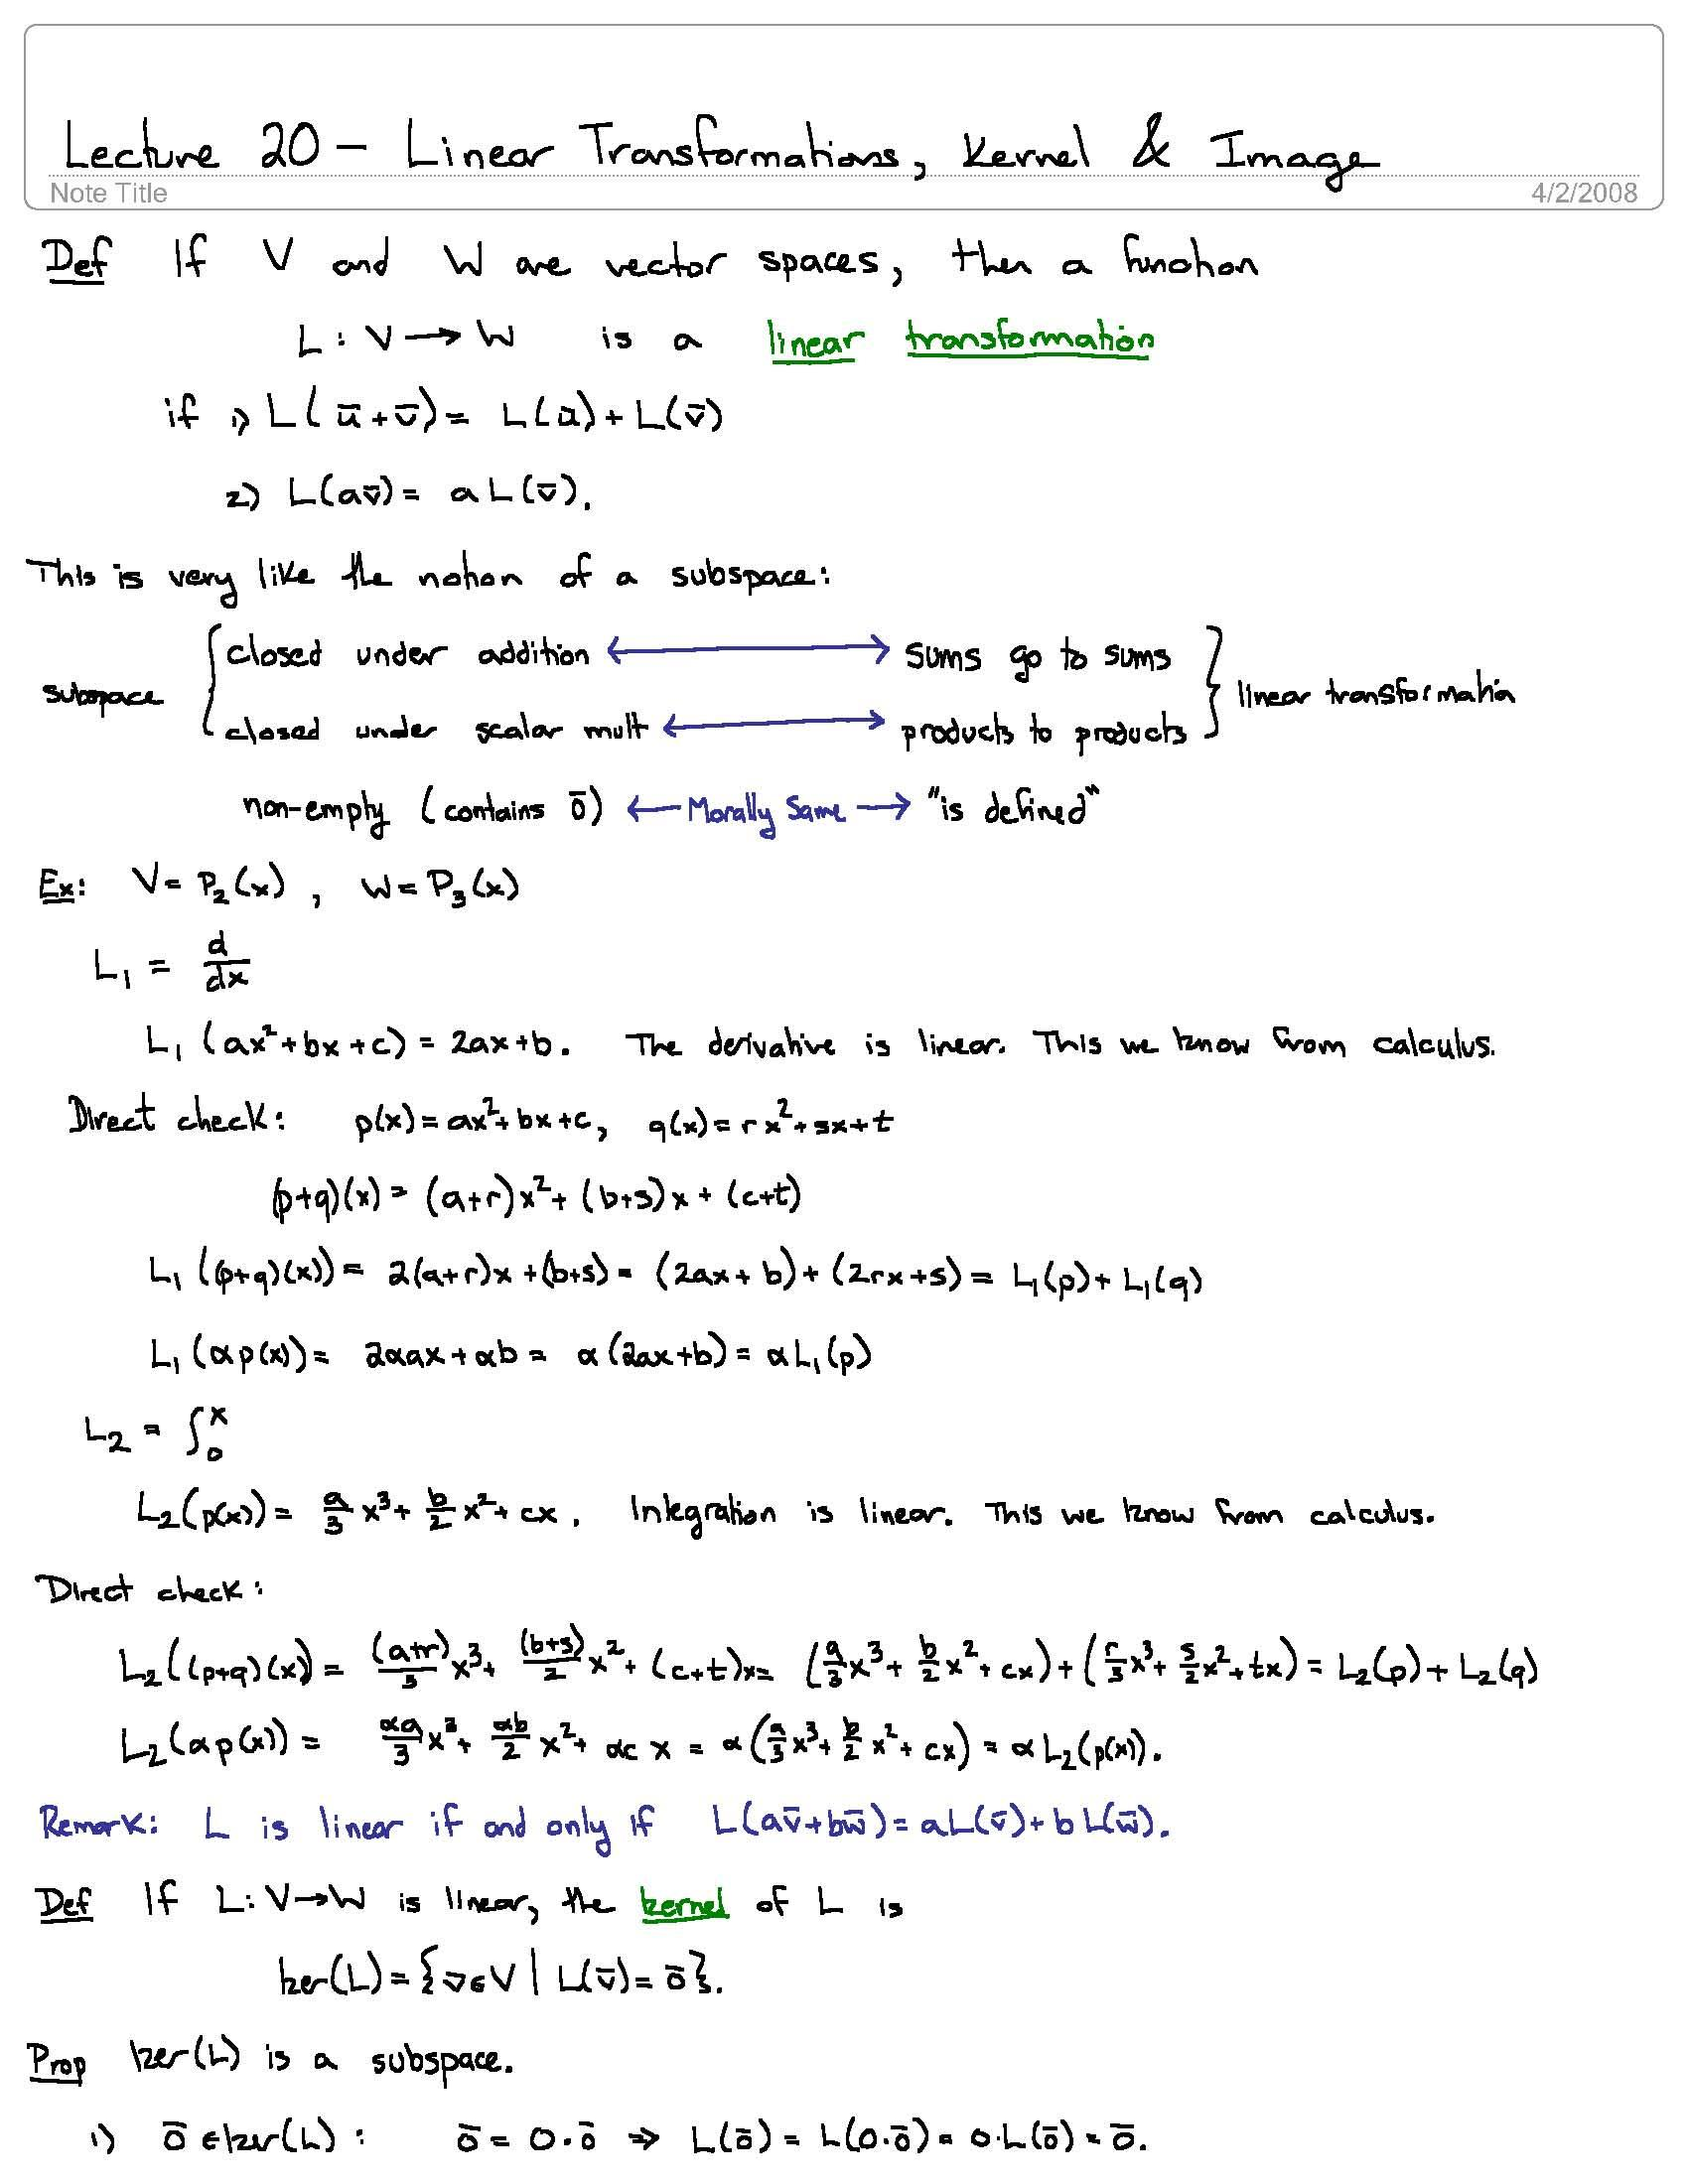 Lecture 20 – Linear Transformations, Kernel & Image
Note Title 4/2/2008
Def If V and W are vector spaces, then a function
L : V → W is a linear transformation
if 1) L(ū + v̄) = L(ū) + L(v̄)
2) L(av̄) = a L(v̄).
This is very like the notion of a subspace:
subspace { closed under addition ⟷ sums go to sums } linear transformation
closed under scalar mult ⟷ products to products
non-empty (contains 0̄) ← Morally Same → "is defined"
Ex: V = P₂(x) , W = P₃(x)
L₁ = d/dx
L₁ (ax² + bx + c) = 2ax + b. The derivative is linear. This we know from calculus.
Direct check: p(x) = ax² + bx + c, q(x) = rx² + sx + t
(p+q)(x) = (a+r)x² + (b+s)x + (c+t)
L₁ ((p+q)(x)) = 2(a+r)x + (b+s) = (2ax + b) + (2rx + s) = L₁(p) + L₁(q)
L₁ (αp(x)) = 2αax + αb = α(2ax+b) = αL₁(p)
L₂ = ∫₀ˣ
L₂(p(x)) = a/3 x³ + b/2 x² + cx. Integration is linear. This we know from calculus.
Direct check:
L₂((p+q)(x)) = (a+r)/3 x³ + (b+s)/2 x² + (c+t)x = (a/3 x³ + b/2 x² + cx) + (r/3 x³ + s/2 x² + tx) = L₂(p) + L₂(q)
L₂(αp(x)) = αa/3 x³ + αb/2 x² + αc x = α(a/3 x³ + b/2 x² + cx) = αL₂(p(x)).
Remark: L is linear if and only if L(av̄ + bw̄) = aL(v̄) + bL(w̄).
Def If L: V → W is linear, the kernel of L is
ker(L) = {v̄ ∈ V | L(v̄) = 0̄}.
Prop ker(L) is a subspace.
1) 0̄ ∈ ker(L) : 0̄ = 0·0̄ ⇒ L(0̄) = L(0·0̄) = 0·L(0̄) = 0̄.